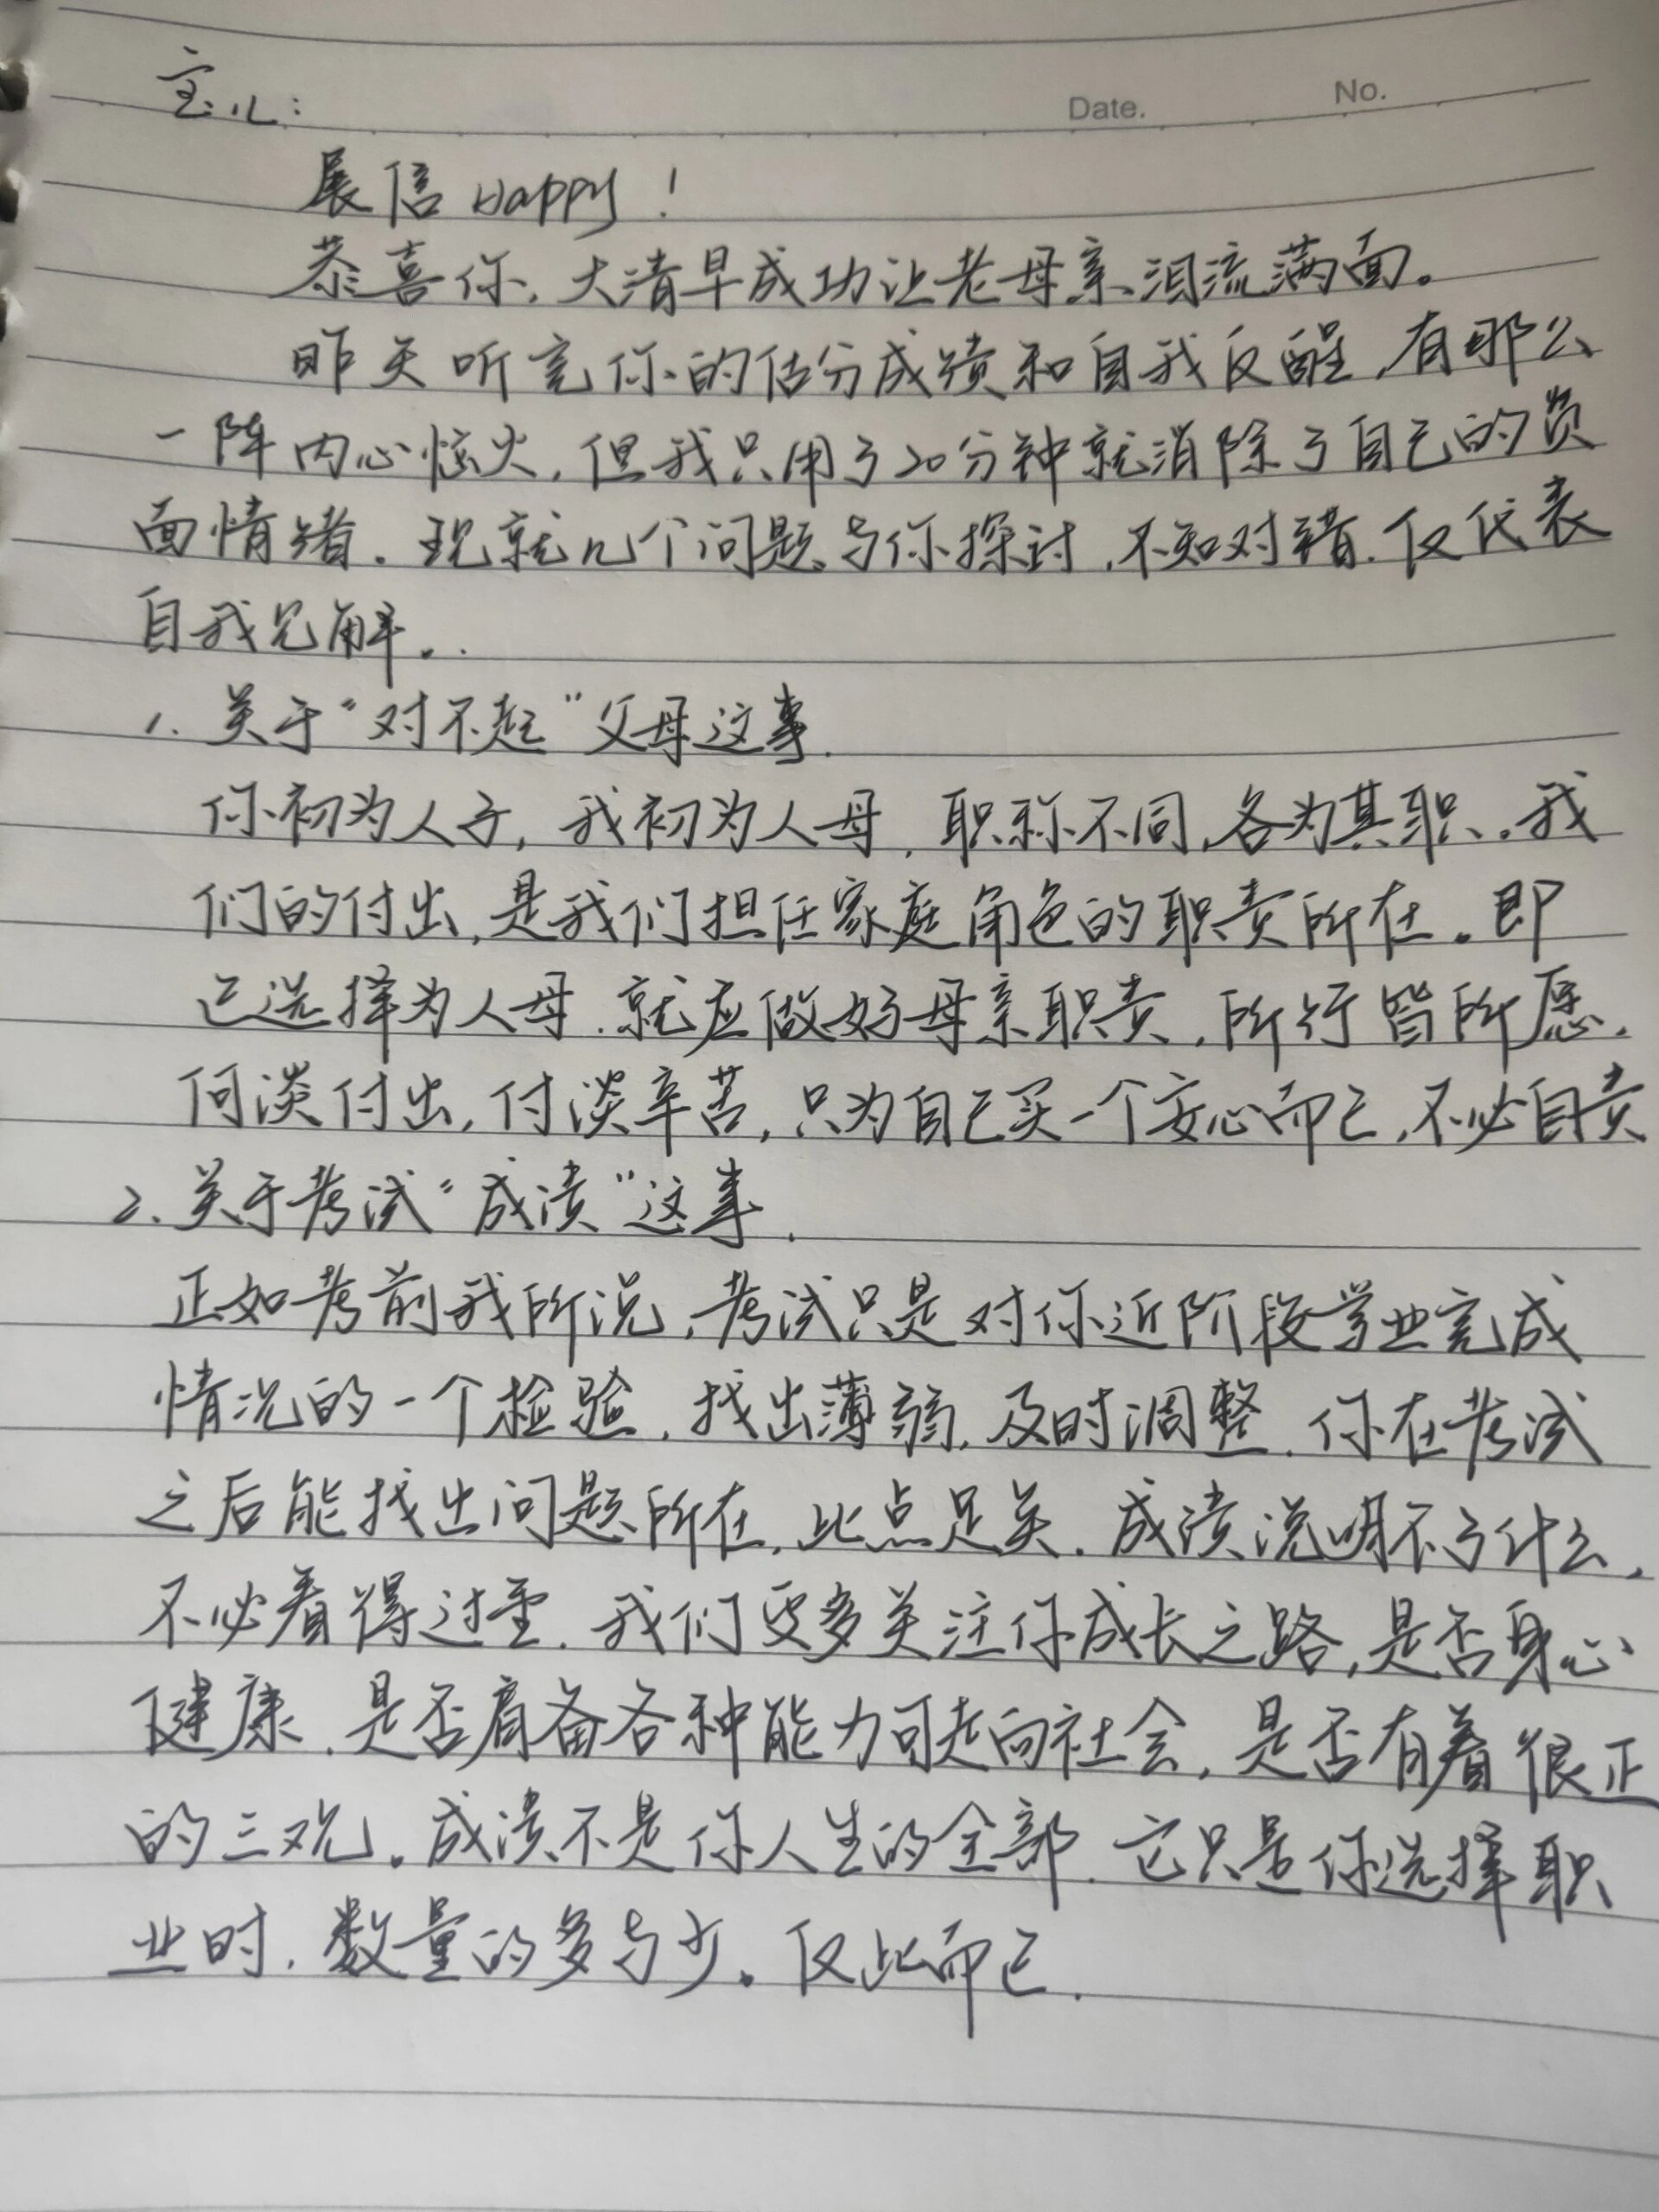 宝儿:
Date. No.
展信Happy!
恭喜你,大清早成功让老母亲泪流满面。
昨天听完你的估分成绩和自我反醒,有那么
一阵内心惊火,但我只用了20分钟就消除了自己的负
面情绪。现就几个问题与你探讨,不知对错.仅代表
自我见解。.
1. 关于“对不起”父母这事.
你初为人子,我初为人母,职称不同,各为其职。我
们的付出,是我们担任家庭角色的职责所在。即
已选择为人母.就应做好母亲职责,所行皆所愿.
何淡付出,付淡辛苦,只为自己买一个安心而已,不必自责
2、关于考试“成绩”这事.
正如考前我所说,考试只是对你近阶段学业完成
情况的一个检验,找出薄弱,及时调整.你在考试
之后能找出问题所在,此点足矣.成绩说明不了什么,
不必看得过重.我们更多关注你成长之路,是否身心
健康.是否肩备各种能力可走向社会,是否有着很正
的三观。成绩不是你人生的全部.它只是你选择职
业时,数量的多与少。仅此而已.